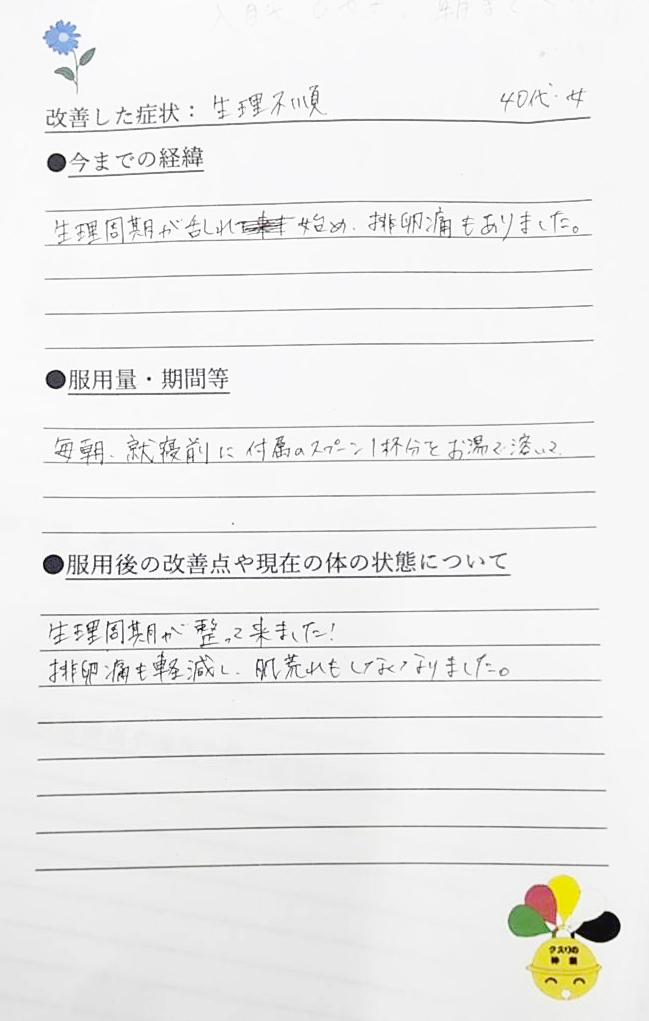 改善した症状：生理不順 40代・女
●今までの経緯
生理周期が乱れ始め、排卵痛もありました。
●服用量・期間等
毎朝、就寝前に付属のスプーン1杯分をお湯で溶いて
●服用後の改善点や現在の体の状態について
生理周期が整って来ました！
排卵痛も軽減し、肌荒れもしなくなりました。
クスリの